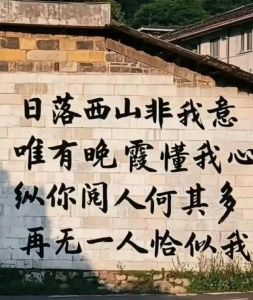 日落西山非我意
唯有晚霞懂我心
纵你阅人何其多
再无一人恰似我